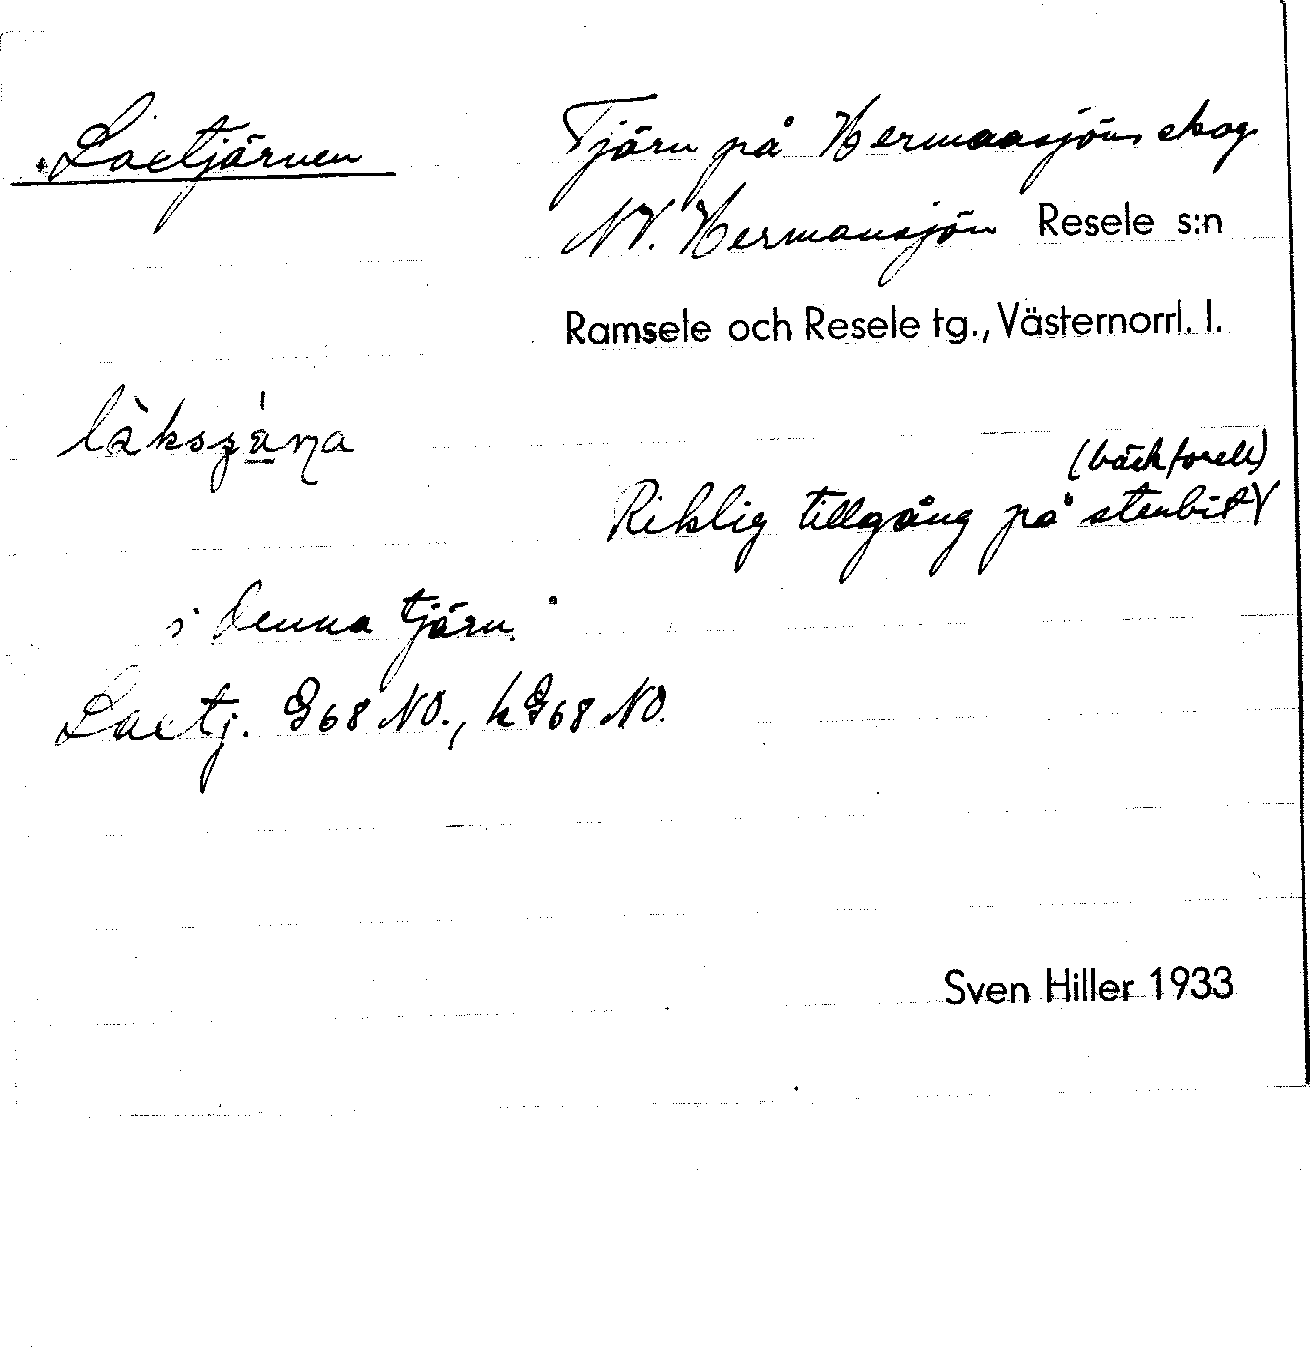 Laxtjärnen
Tjärn på Hermansjöns skog
NV. Hermansjön Resele s:n
Ramsele och Resele tg., Västernorrl. l.
(bäckforell)
Riklig tillgång på stenbit
i denna tjärn.
Laxtj. G68 NO., hG68 NO.
Sven Hiller 1933